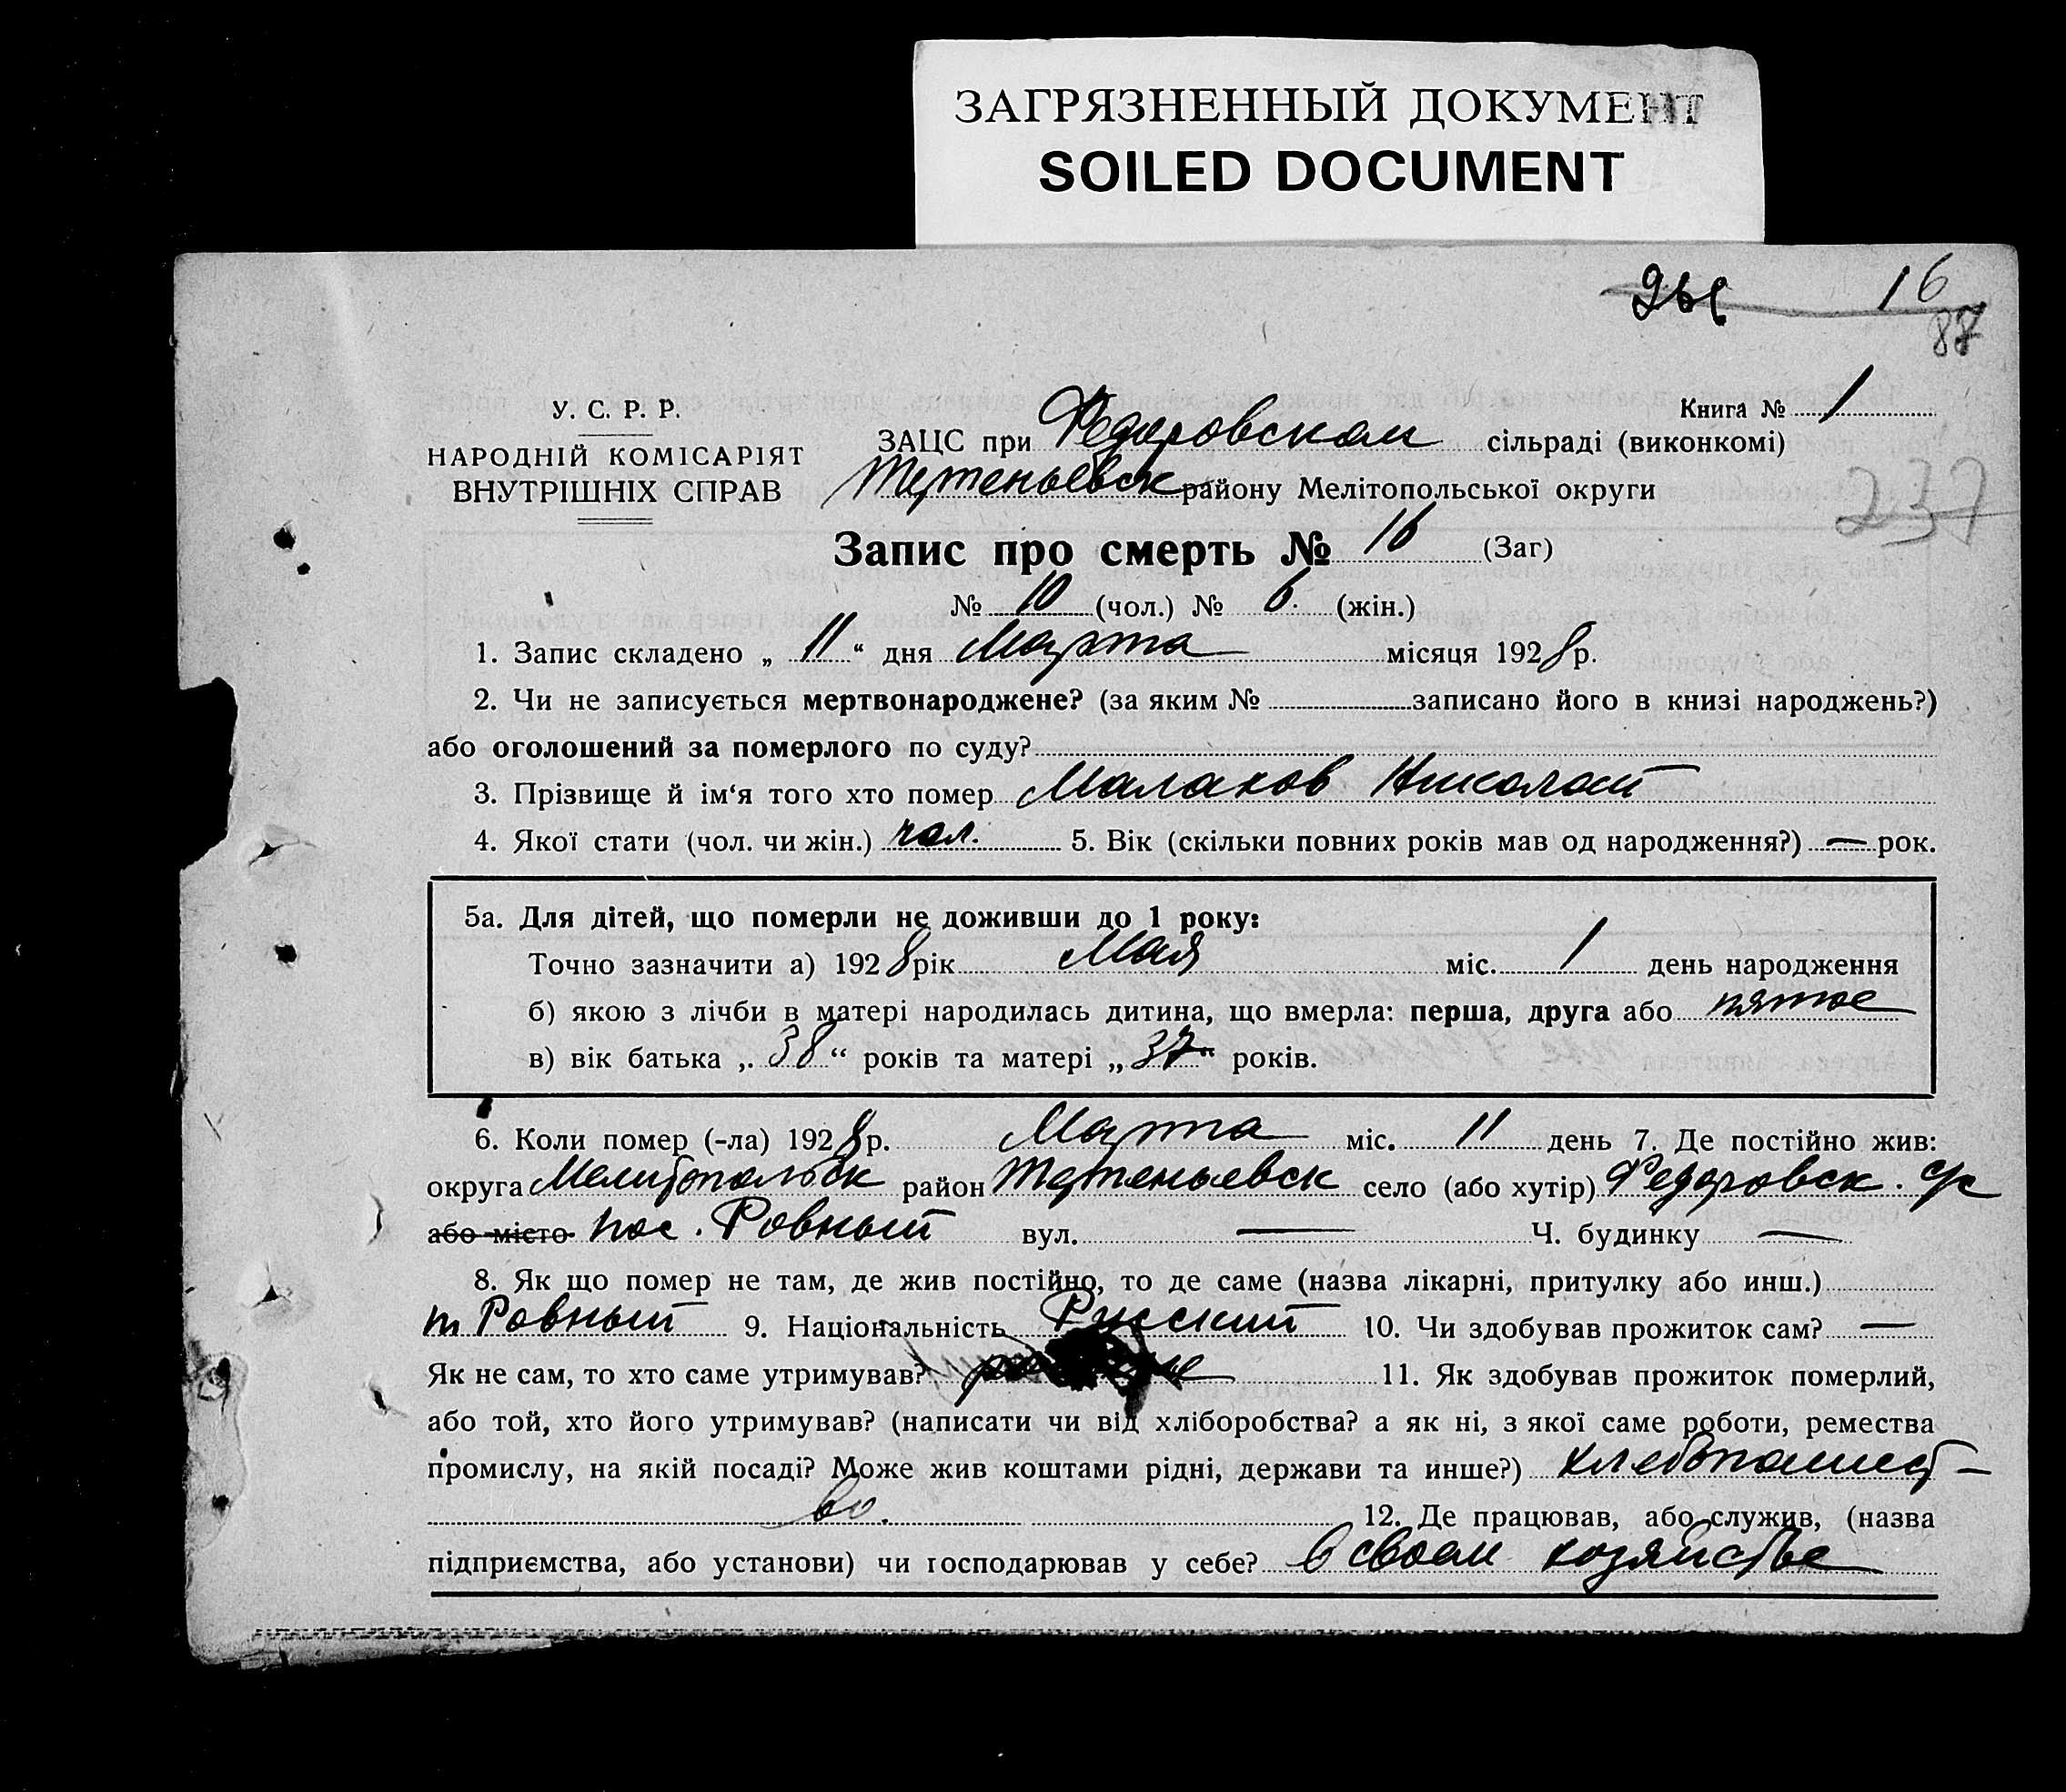 ЗАГРЯЗНЕННЫЙ ДОКУМЕНТ
SOILED DOCUMENT
16
87
У. С. Р. Р.
НАРОДНІЙ КОМІСАРІЯТ
ВНУТРІШНІХ СПРАВ
Книга № 1
ЗАЦС при Федоровском сільраді (виконкомі)
району Мелітопольської округи
237
Запис про смерть № 16 (Заг)
№ 10 (чол.) № 6. (жін.)
1. Запис складено „ 11 “ дня Марта місяця 1928 р.
2. Чи не записується мертвонароджене? (за яким № записано його в книзі народжень?)
або оголошений за померлого по суду?
3. Прізвище й ім‘я того хто помер Малахов Николай
4. Якої стати (чол. чи жін.) чол. 5. Вік (скільки повних років мав од народження?) — рок.
5а. Для дітей, що померли не доживши до 1 року:
Точно зазначити а) 1928 рік Мая міс. 1 день народження
б) якою з лічби в матері народилась дитина, що вмерла: перша, друга або пятое
в) вік батька „ 38 “ років та матері „ 37 “ років.
6. Коли помер (-ла) 1928 р. Марта міс. 11 день 7. Де постійно жив:
округа Мелитопольск район село (або хутір) Федоровск. с/с
або місто пос. Ровный вул. — Ч. будинку —
8. Як що помер не там, де жив постійно, то де саме (назва лікарні, притулку або инш.)
п Ровный 9. Національність Русский 10. Чи здобував прожиток сам? —
Як не сам, то хто саме утримував? 11. Як здобував прожиток померлий,
або той, хто його утримував? (написати чи від хліборобства? а як ні, з якої саме роботи, ремества
промислу, на якій посаді? Може жив коштами рідні, держави та инше?) хлебопашест-
во. 12. Де працював, або служив, (назва
підприємства, або установи) чи господарював у себе? В своем хозяйстве